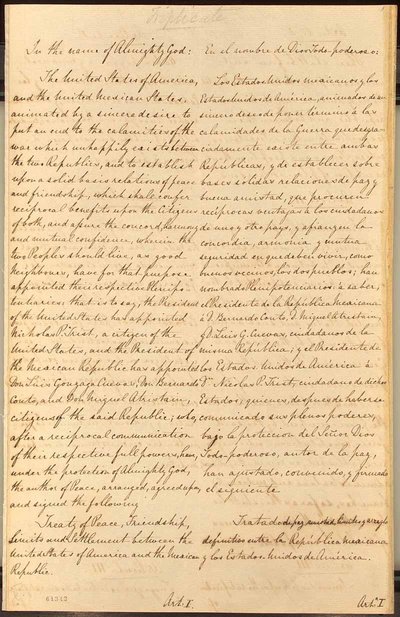 Duplicate
In the name of Almighty God:
The United States of America,
and the United Mexican States,
animated by a sincere desire to
put an end to the calamities of the
war which unhappily exists between
the two Republics, and to establish
upon a solid basis relations of peace
and friendship, which shall confer
reciprocal benefits upon the citizens
of both, and assure the concord, harmony
and mutual confidence, wherein the
two Peoples should live, as good
Neighbours, have for that purpose
appointed their respective Plenipo-
tentiaries: that is to say, the President
of the United States has appointed
Nicholas P. Trist, a citizen of the
United States, and the President of
the Mexican Republic has appointed
Don Luis Gonzaga Cuevas, Don Bernardo
Couto, and Don Miguel Atristain,
citizens of the said Republic; who,
after a reciprocal communication
of their respective full powers, have,
under the protection of Almighty God,
the author of Peace, arranged, agreed upon,
and signed the following
Treaty of Peace, Friendship,
Limits and Settlement between the
United States of America and the Mexican
Republic.
Art: I.
En el nombre de Dios Todo-poderoso:
Los Estados Unidos mexicanos y los
Estados Unidos de América, animados de un
sincero deseo de poner término a las
calamidades de la Guerra que desgra-
ciadamente existe entre ambas
Repúblicas, y de establecer sobre
bases sólidas relaciones de paz y
buena amistad, que procuren
recíprocas ventajas á los ciudadanos
de uno y otro pays, y afianzen la
concordia, armonía y mutua
seguridad en que deben vivir, como
buenos vecinos, los dos pueblos; han
nombrado Plenipotenciarios: á saber,
el Presidente de la República mexicana
á D. Bernardo Couto, D. Miguel Atristain,
y D. Luis G. Cuevas, ciudadanos de la
misma República; y el Presidente de
los Estados Unidos de América á
Dn. Nicolas P. Trist, ciudadano de dichos
Estados; quienes, despues de haberse
comunicado sus plenos poderes,
bajo la proteccion del Señor Dios
Todo-poderoso, autor de la paz,
han ajustado, convenido, y firmado
el siguiente
Tratado de paz, amistad, límites y arreglo
definitivo entre la República mexicana
y los Estados Unidos de América.
Arto. I
61343